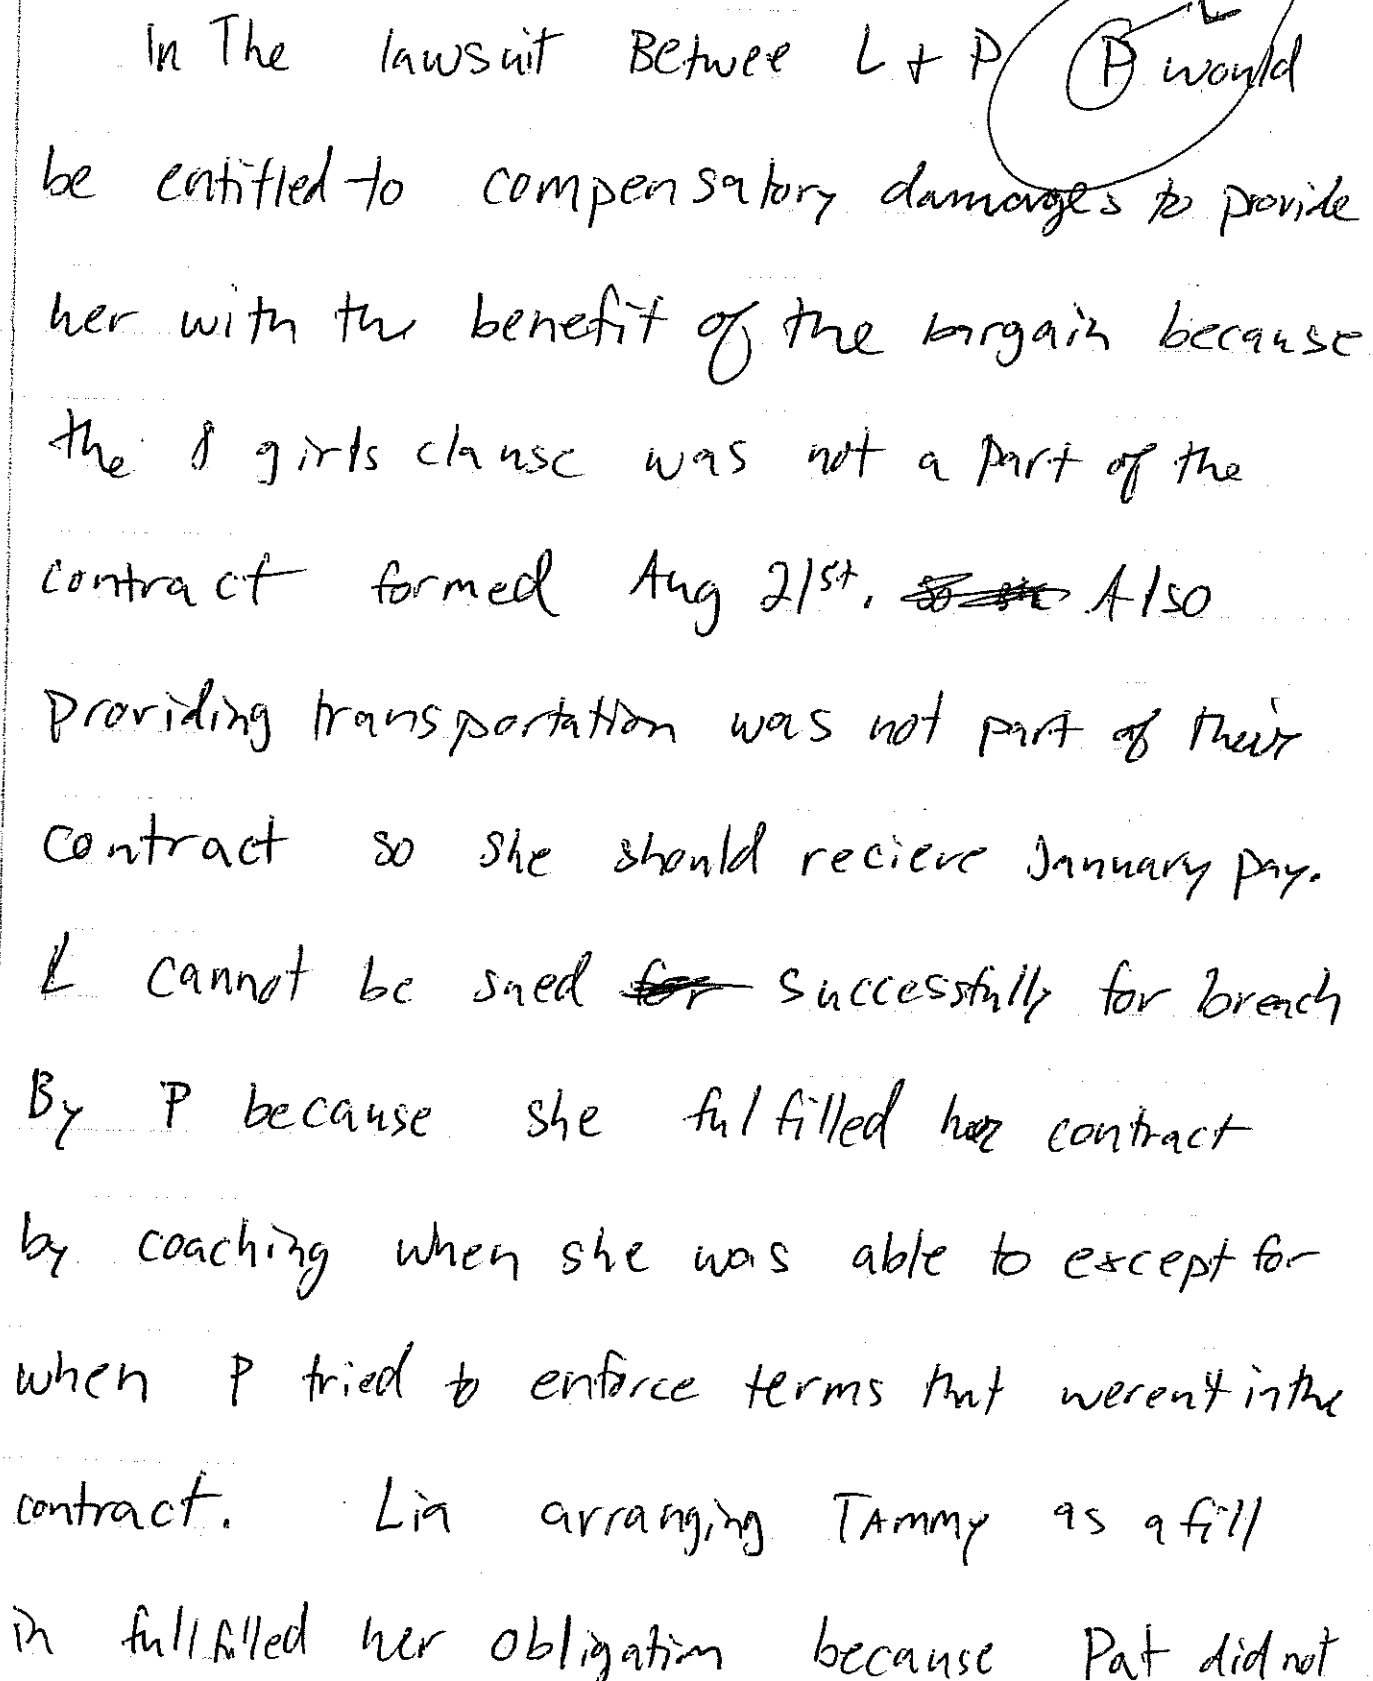 In The lawsuit Betwee L + P P L would
be entitled to compensatory damages to provide
her with the benefit of the bargain because
the 8 girls clause was not a part of the
contract formed Aug 21st. Also
providing transportation was not part of their
contract so she should recieve January pay.
L cannot be sued for successfully for breach
By P because she fulfilled her contract
by coaching when she was able to except for
when P tried to enforce terms that weren't in the
contract. Lia arranging TAmmy as a fill
in fullfilled her obligation because Pat did not